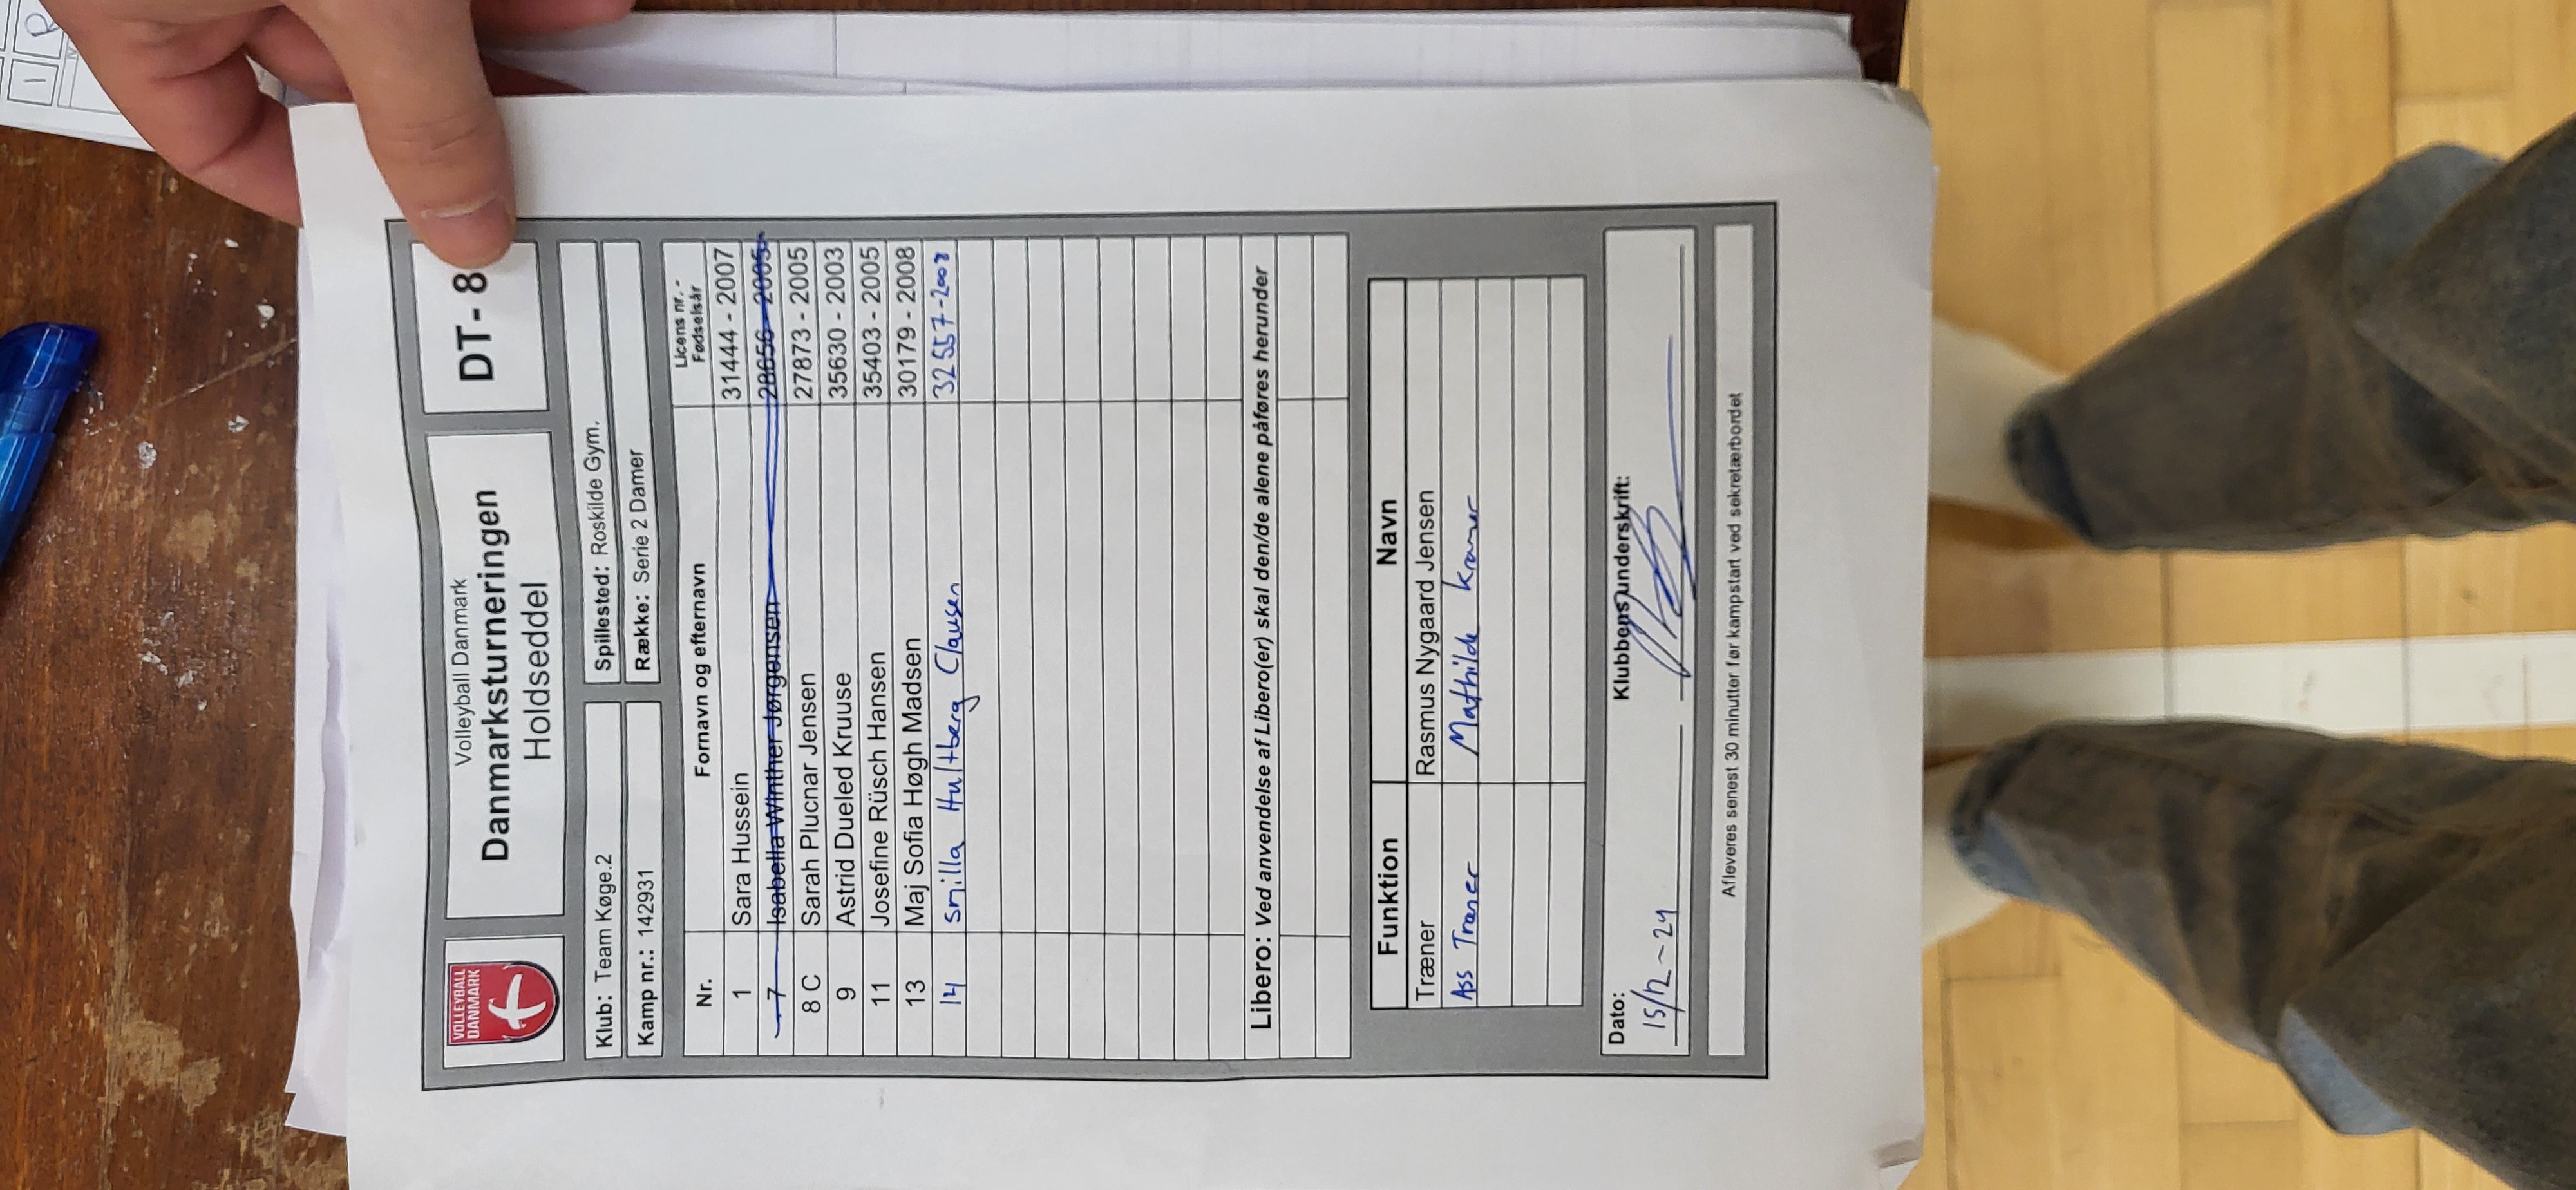 VOLLEYBALL
DANMARK
Volleyball Danmark
Danmarksturneringen
Holdseddel
DT- 8
Klub: Team Køge.2
Spillested: Roskilde Gym.
Kamp nr.: 142931
Række: Serie 2 Damer
Nr. Fornavn og efternavn Licens nr. - Fødselsår
1 Sara Hussein 31444 - 2007
7 Isabella Winther Jørgensen 28656 - 2005
8 C Sarah Plucnar Jensen 27873 - 2005
9 Astrid Dueled Kruuse 35630 - 2003
11 Josefine Rüsch Hansen 35403 - 2005
13 Maj Sofia Høgh Madsen 30179 - 2008
14 Smilla Hultberg Clausen 32557-2008
Libero: Ved anvendelse af Libero(er) skal den/de alene påføres herunder
Funktion Navn
Træner Rasmus Nygaard Jensen
Ass Træner Mathilde Kramer
Dato: Klubbens underskrift:
15/12-24
Afleveres senest 30 minutter før kampstart ved sekretærbordet